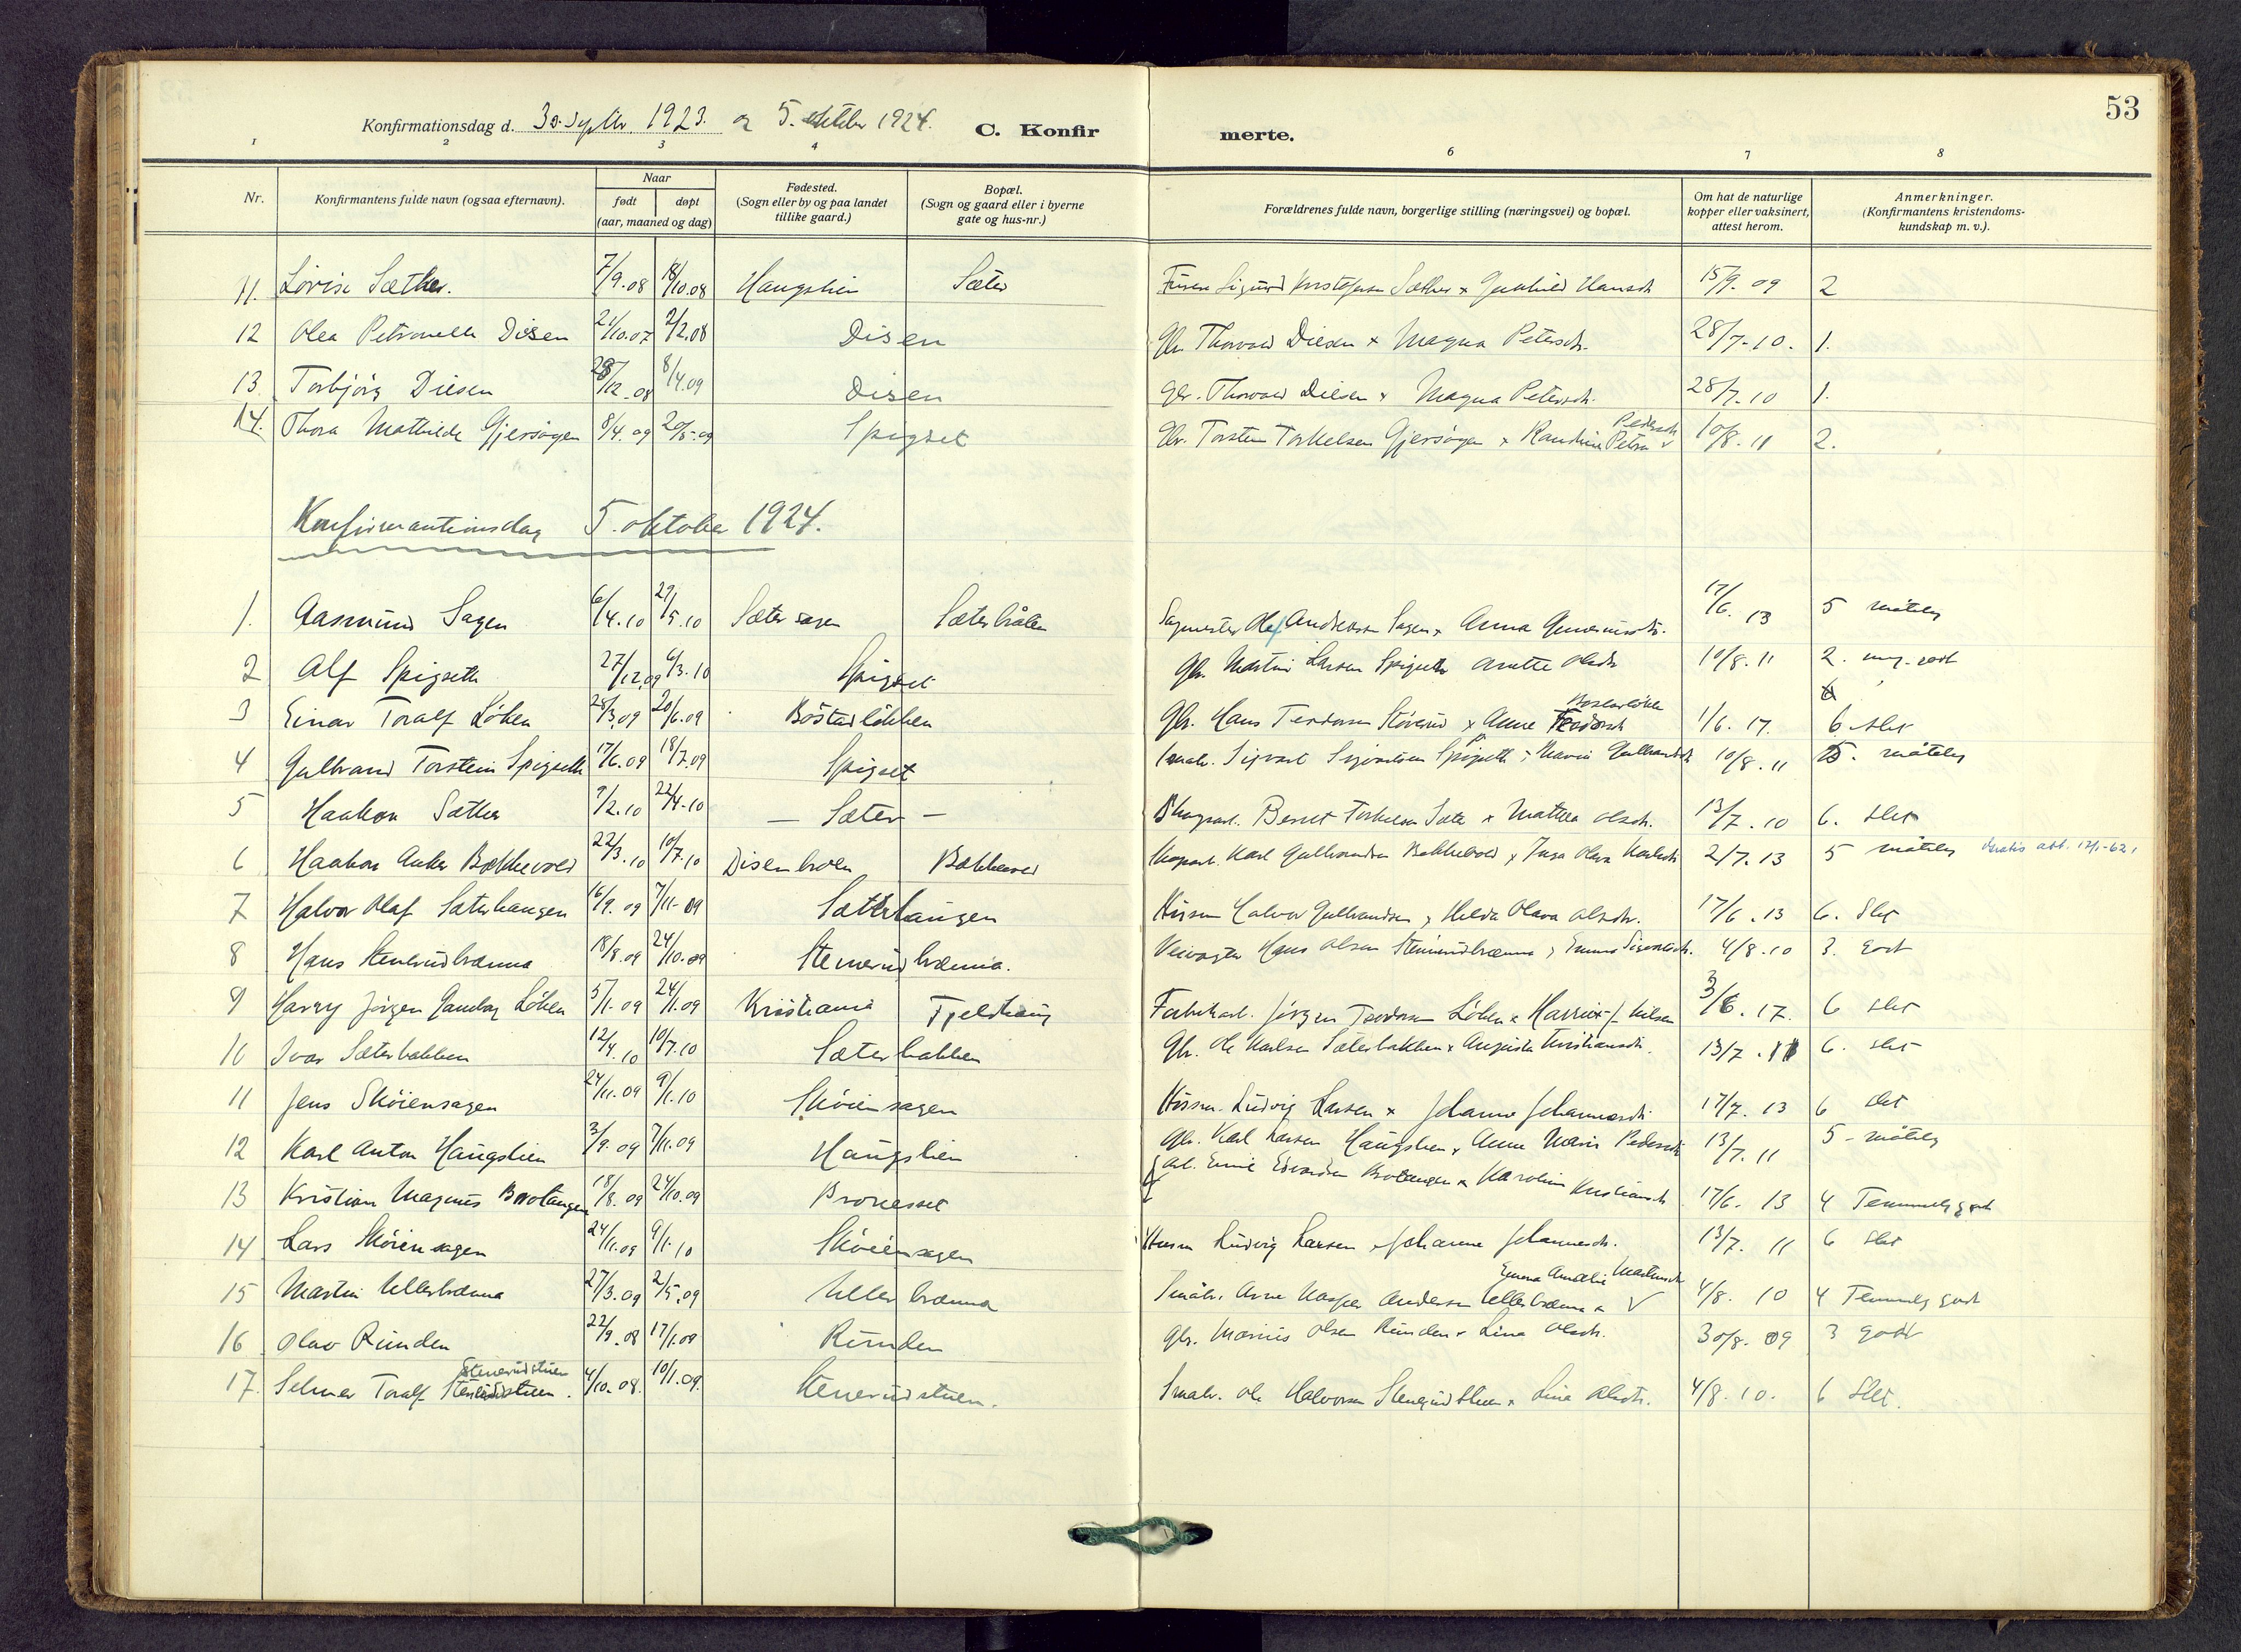 53
Konfirmationsdag d. 30. Septbr. 1923. og 5. oktober 1924. C. Konfirmerte.
1 2 3 4 6 7 8
Nr. Konfirmantens fulde navn (ogsaa efternavn). Naar født døpt (aar, maaned og dag) Fødested. (Sogn eller by og paa landet tillike gaard.) Bopæl. (Sogn og gaard eller i byerne gate og hus-nr.) Forældrenes fulde navn, borgerlige stilling (næringsvei) og bopæl. Om hat de naturlige kopper eller vaksinert, attest herom. Anmerkninger. (Konfirmantens kristendoms-kundskap m. v.).
11. Lovise Sæther. 7/9.08 18/10.08 Haugslien Sæter Sigurd Kristofersen Sæther x Gunhild Hansdtr 15/9. 09 2
12 Olea Petronelle Disen 21/10.07 2/2.08 Disen Gbr. Thorvald Diesen x Magna Petersdtr. 28/7-10. 1.
13 Torbjörg Diesen 28/12.08 8/4.09 Disen Gbr. Thorvald Diesen x Magna Petersdtr. 28/7-10 1.
14. Thora Mathilde Gjersøgen 8/4.09 20/5-09 Spigset Gbr. Torsten Torkelsen Gjersøgen x Randine Petra Pedersdtr 10/8. 11 2.
Konfirmantionsdag 5. oktober 1924.
1. Aasmund Sagen 6/4.10 29/5.10 Sæter sagen Sæterbråten Sagmester Olaf Andreassen Sagen x Anna 17/6. 13 5 måtelig
2 Alf Spigseth 27/12.09 6/3.10 Spigset Gbr. Martin Larsen Spigseth Anette Olsdtr 10/8.11 2. meg. godt
3 Einar Toralf Løken 28/3.09 20/6.09 Böstadlökken Gbr. Hans Teodorsen Stöverud x Anne Teodorsdtr 1/6. 17. 6 slet
4 Gulbrand Torstein Spigseth 17/6.09 18/7.09 Spigset Småbr. Sigvart Sigvartsen Spigseth x Marie Gulbrandsdtr 10/8.11 5. måtelig
5 Haakon Sæther 9/2.10 22/4-10 — Sæter — Skogsarb. Bernt Torkelsen Sæter x Mathea Olsdtr. 13/7. 10 6. slet
6 Haakon Anker Bækkevold 22/3.10 10/7.10 Disenbroen Bækkevold Skogsarb. Karl Gulbrandsen Bækkevold x Inga Olava Karlsdtr 2/7. 13 5 måtelig Gratis att. 12/1-62.
7 Halvor Olaf Sæterhaugen 16/9.09 7/11-09 Sæterhaugen Husm Halvor Gulbrandsen x Hilda Olava Olsdtr. 17/6.13 6. slet
8 Hans Stenerudbrænna 18/8.09 24/10.09 Stenerudbrænna. Veivogter Hans Olsen Stenerudbrænna x Emma Sigvartsdtr. 4/8.10 3. godt
9 Harry Jörgen Gamborg Løken 5/1.09 24/1.09 Kristiania Fjeldhaug Fabrikarb. Jörgen Teodorsen Løken x Harriet J. Nilsen 3/6.17. 6 slet
10 Ivar Sæterbakken 12/4.10 10/7.10 Sæterbakken Gbr. Ole Karlsen Sæterbakken x Augusta Kristiansdtr. 13/7.11 6. slet
11 Jens Skøiensagen 24/11.09 9/1.10 Skøiensagen Husm. Ludvig Larsen x Johanne Johannesdtr 17/7. 13 6 slet
12 Karl Anton Haugslien 3/9.09 7/11.09 Haugslien Gbr. Karl Larsen Haugslien x Anne Marie Pedersdtr 13/7.11 5 - måtelig
13 Kristian Magnus Brotangen 18/8.09 24/10.09 Bronesset Arb. Emil Edvardsen Brotangen x Karoline Kristiansdtr 17/6. 13 4 Temmelig godt
14 Lars Skøiensagen 24/11.09 9/1.10 Skøiensagen Husm Ludvig Larsen x Johanne Johannesdtr. 13/7. 11 6 slet
15 Martin Ullerbrænna 27/3.09 2/5.09 Ullerbrænna Småbr. Arne Kasper Andersen Ullerbrænna x Emma Amalie Martinsdtr 4/8. 10 4 Temmelig godt
16 Olav Runden 22/9.08 17/1.09 Runden Gbr. Marius Olsen Runden x Lina Olsdtr. 30/8. 09 3 godt
17. Selmer Toralf Stenerudstuen 4/10.08. 10/1.09. Stenerudstuen. Småbr. Ole Halvorsen Stenerudstuen x Lina Olsdtr. 4/8.10. 6 slet.